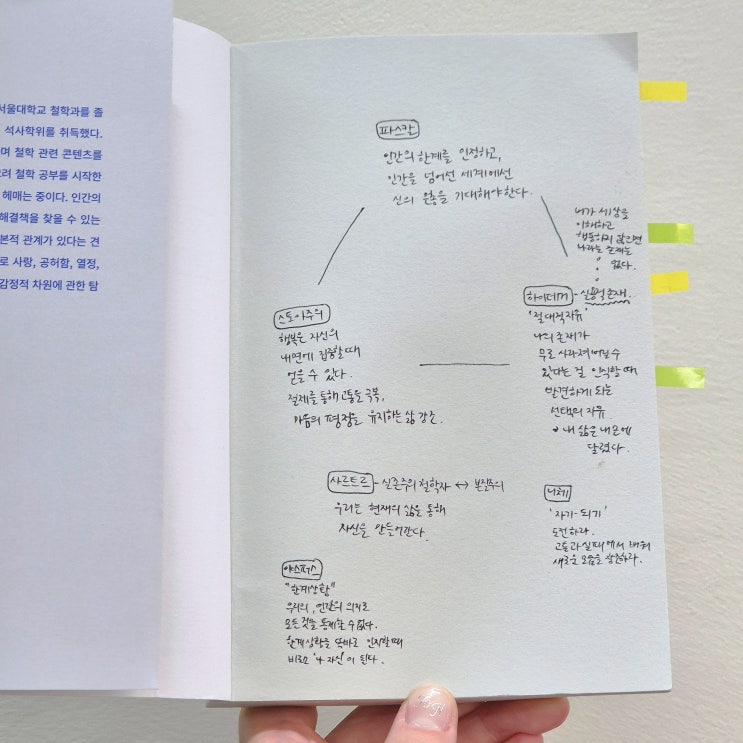 서울대학교 철학과를 졸
석사학위를 취득했다.
며 철학 관련 콘텐츠를
려 철학 공부를 시작한
헤매는 중이다. 인간의
해결책을 찾을 수 있는
본적 관계가 있다는 견
로 사랑, 공허함, 열정,
감정적 차원에 관한 탐
파스칼
인간의 한계를 인정하고,
인간을 넘어선 세계에선
신의 은총을 기대해야한다.
내가 세상을
이해하고
행동하지 않으면
나라는 존재는
없다.
스토아주의
행복은 자신의
내면에 집중할때
얻을 수 있다.
절제를 통해 고통을 극복,
마음의 평정을 유지하는 삶 강조.
하이데거 - 실용적 존재.
'절대적 자유'
나의 존재가
무로 사라져버릴 수
있다는 걸 인식할 때
발견하게 되는
선택의 자유
내 삶은 내 손에
달렸다.
사르트르 - 실존주의 철학자 ↔ 본질주의
우리는 현재의 삶을 통해
자신을 만들어간다.
니체
'자기-되기'
도전하라.
고통과 실패에서 배워
새로운 모습을 창조하라.
야스퍼스
"한계상황"
우리의, 인간의 의지로
모든 것을 통제할 수 없다.
한계상황을 똑바로 인지할 때
비로소 '나 자신'이 된다.